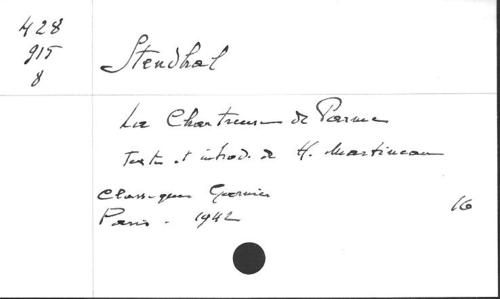 428
915
8
Stendhal
La Chartreuse de Parme
Texte et introd. de H. Martineau
Classiques Garnier
16
Paris - 1942